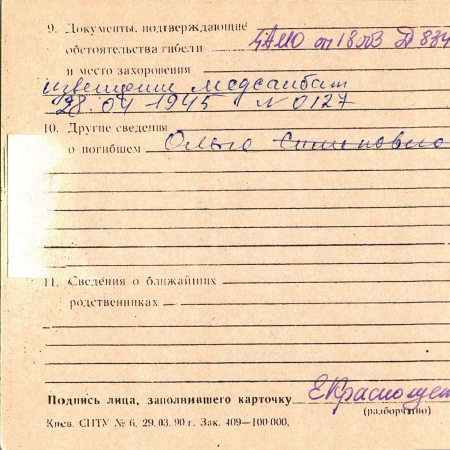 9. Документы, подтверждающие
обстоятельства гибели ЦАМО оп 18003 Д 884
и место захоронения
извещение медсанбат
28.04 1945 N 0127
10. Другие сведения
о погибшем Ольга Семеновна
11. Сведения о ближайших
родственниках
Подпись лица, заполнившего карточку
(разборчиво)
Киев. СПТУ № 6, 29. 03. 90 г. Зак. 409—100 000.